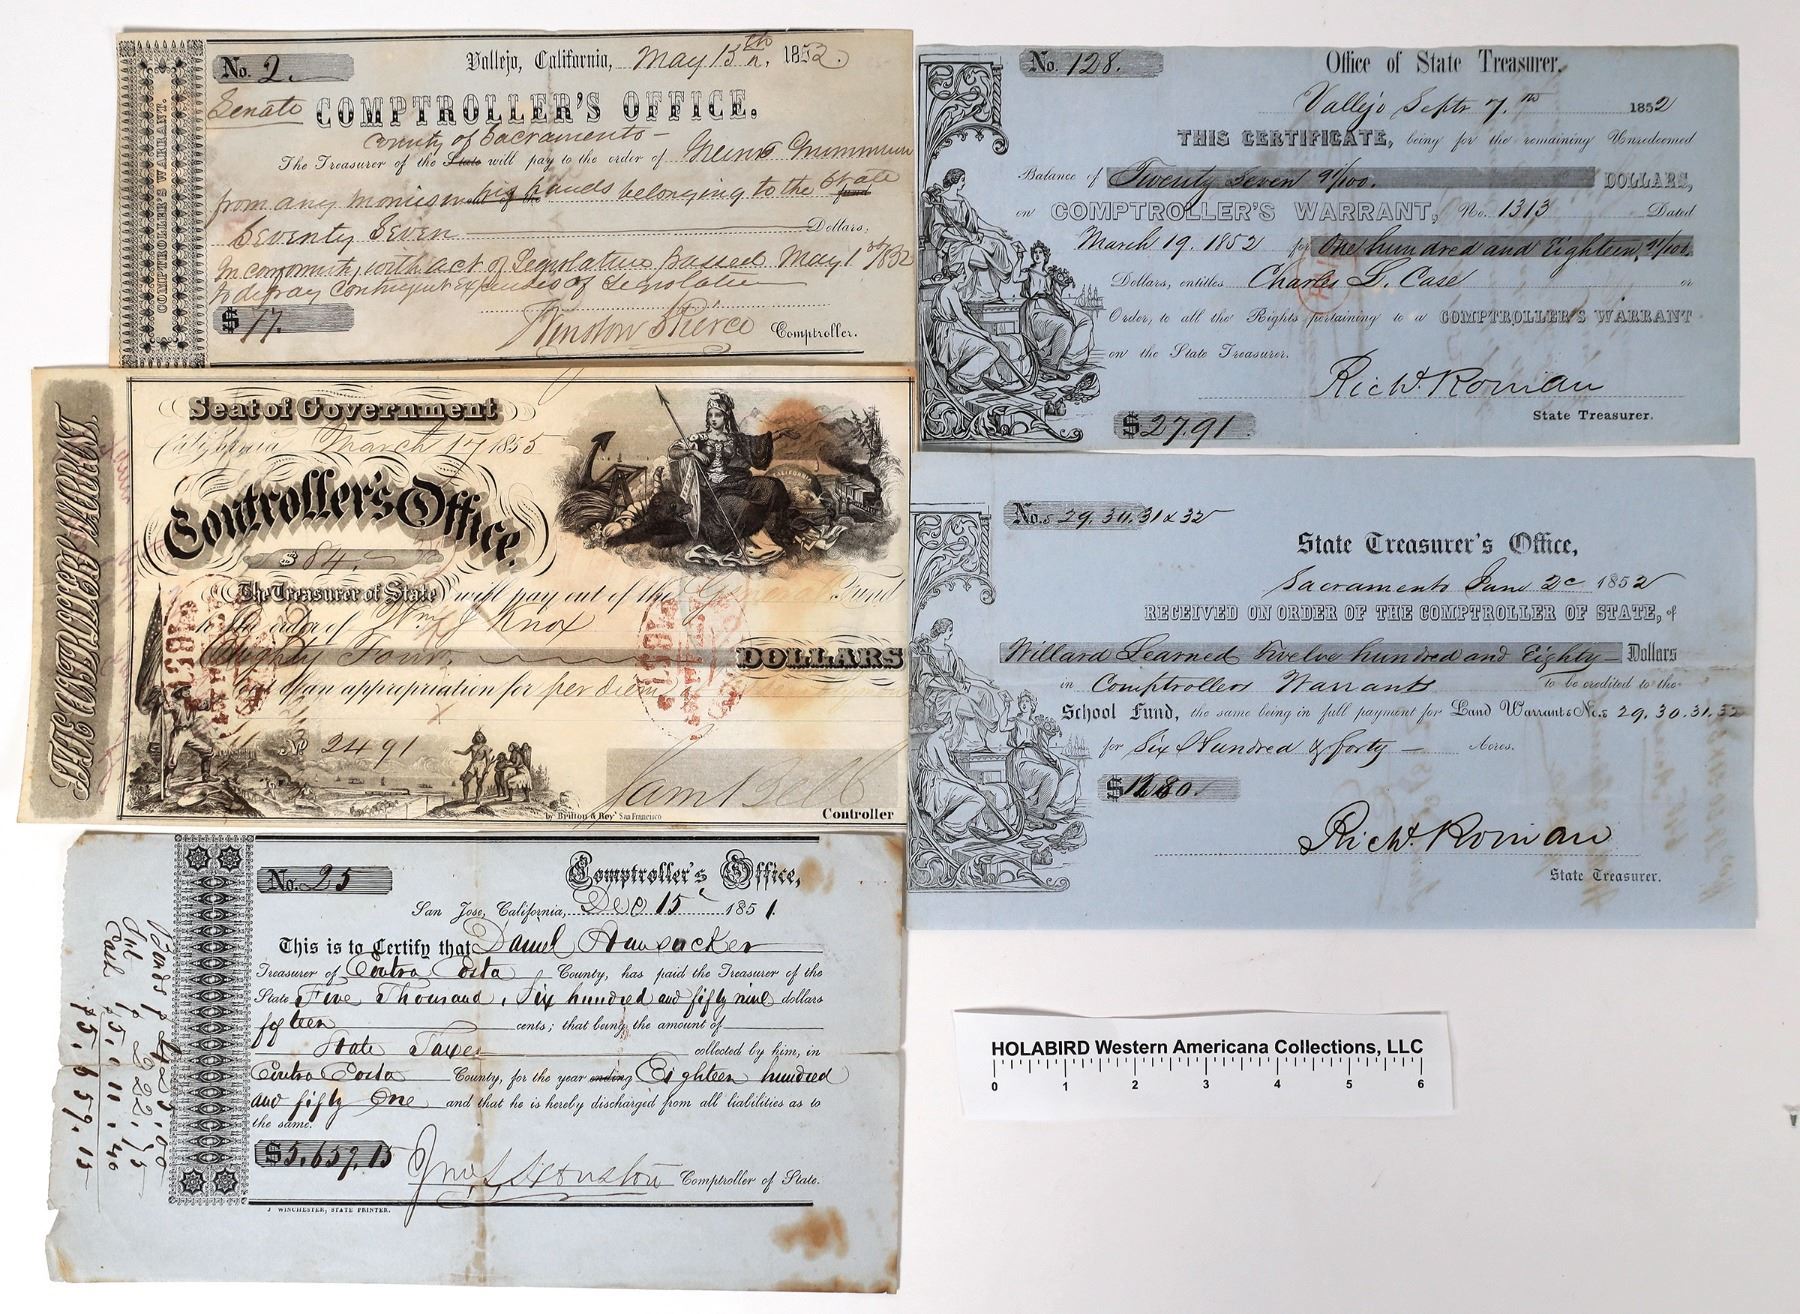 No. 2.
Vallejo, California, May 13th 1852.
Senate COMPTROLLER'S OFFICE.
County of Sacramento –
The Treasurer of the State will pay to the order of
from any monies out of the hands belonging to the State fund
Seventy Seven Dollars,
In conformity with act of Legislature passed May 1st 1852
to defray Contingent Expenses of Legislature
$77.
Winslow S Pierce Comptroller.
COMPTROLLER'S WARRANT.
No. 128.
Office of State Treasurer.
Vallejo Septr 7th 1852
THIS CERTIFICATE, being for the remaining Unredeemed
Balance of Twenty Seven 91/100. DOLLARS,
on COMPTROLLER'S WARRANT, No. 1313 Dated
March 19. 1852 for One hundred and Eighteen, 91/100.
Dollars, entitles Charles L. Case or
Order, to all the Rights pertaining to a COMPTROLLER'S WARRANT
on the State Treasurer.
Richd. Roman
State Treasurer.
$27.91
THE CONTROLLER WARRANT.
Seat of Government
California March 17 1855
Controller's Office.
$84.
The Treasurer of State will pay out of the General Fund
to the order of Wm J Knox
Eighty Four. DOLLARS
out of an appropriation for per diem
No 2491
Saml Bell
by Britton & Rey San Francisco
Controller
CALIFORNIA
No.s 29. 30. 31 & 32
State Treasurer's Office,
Sacramento June 2d 1852
RECEIVED ON ORDER OF THE COMPTROLLER OF STATE, of
Willard Learned Twelve hundred and Eighty – Dollars
in Comptrollers Warrants to be credited to the
School Fund, the same being in full payment for Land Warrants No.s 29. 30. 31. 32
for Six Hundred & forty – Acres.
$1280.
Richd. Roman
State Treasurer.
No. 25
Comptroller's Office,
San Jose, California, Dec 15 1851.
This is to Certify that Daniel Hunsacker
Treasurer of Contra Costa County, has paid the Treasurer of the
State Five Thousand, Six hundred and fifty nine dollars
fifteen cents; that being the amount of
State Taxes collected by him, in
Contra Costa County, for the year ending Eighteen hundred
and fifty One and that he is hereby discharged from all liabilities as to
the same.
$5,659.15
Jno. S. Houston Comptroller of State.
J WINCHESTER, STATE PRINTER.
Bonds
Int
Cash
$5.659.15
HOLABIRD Western Americana Collections, LLC
0 1 2 3 4 5 6